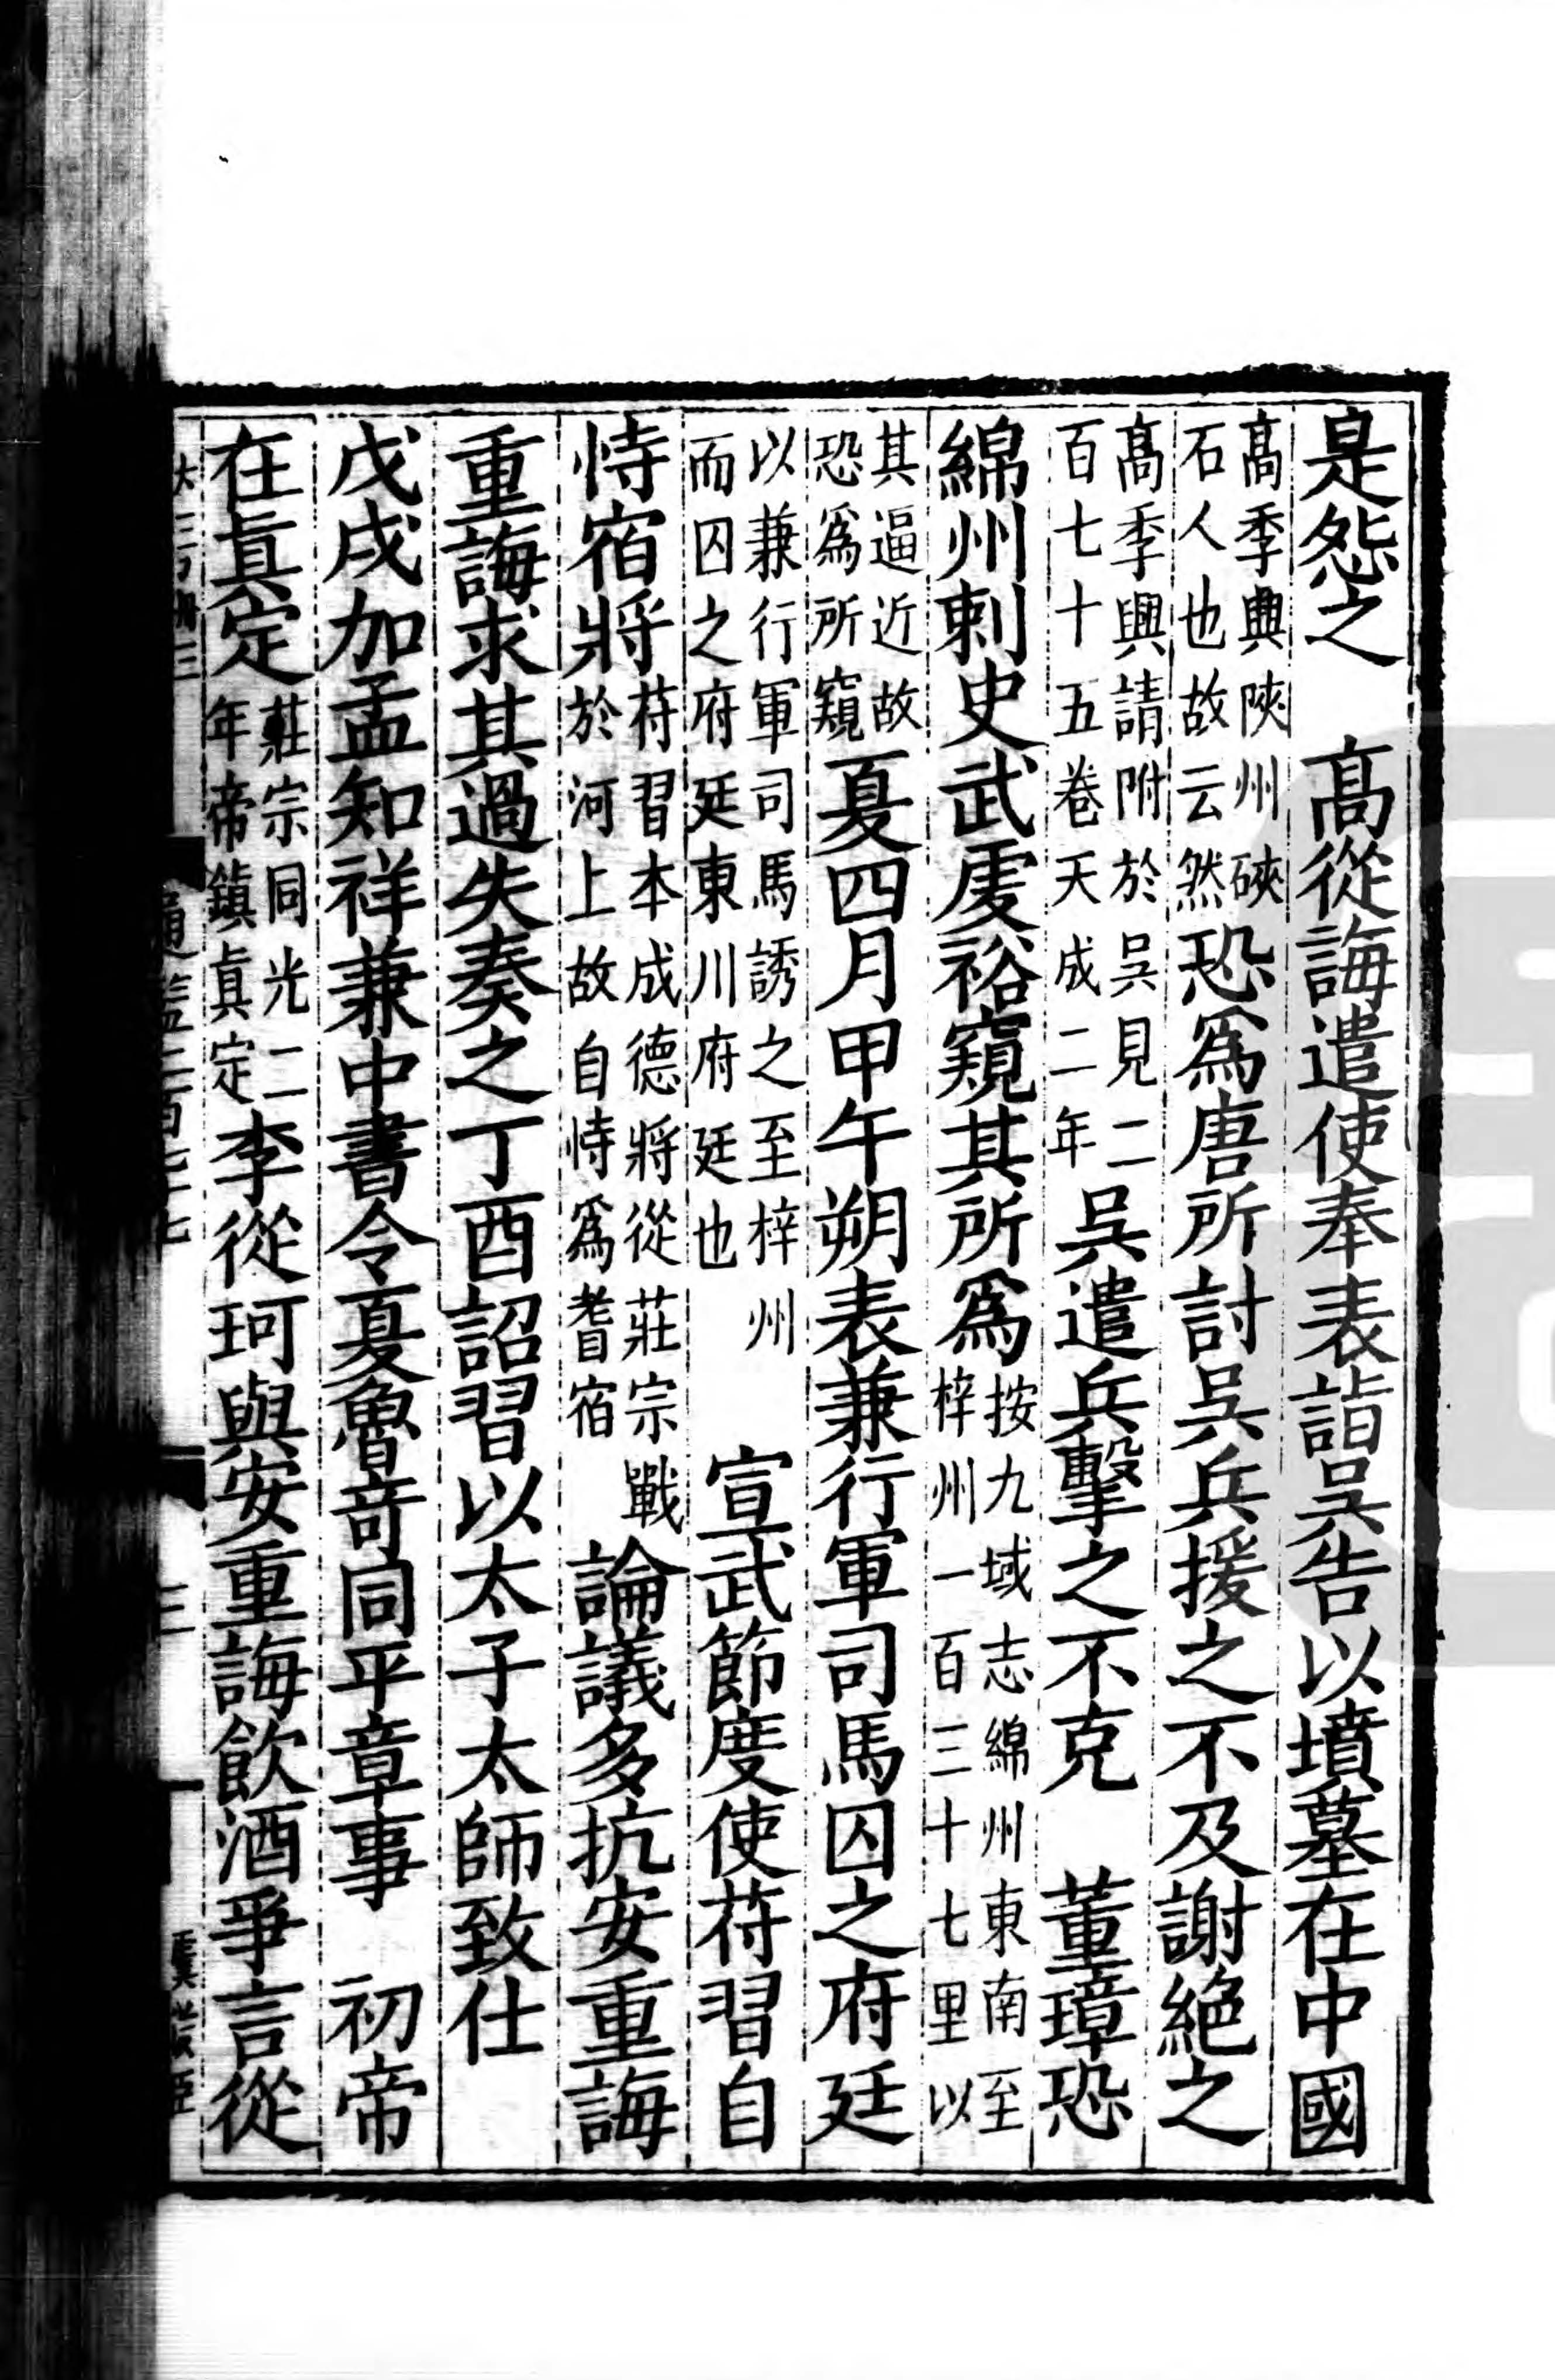 是怨之　髙從誨遣使奉表詣吳告以墳墓在中國
髙季興陜州硤石人也故云然恐爲唐所討吳兵援之不及謝絶之
髙季興請附於吳見二百七十五卷天成二年吳遣兵擊之不克　董璋恐
綿州刺史武虔裕窺其所爲按九域志綿州東南至梓州一百三十七里以
其逼近故恐爲所窺夏四月甲午朔表兼行軍司馬囚之府廷
以兼行軍司馬誘之至梓州而囚之府廷東川府廷也　宣武節度使苻習自
恃宿將苻習本成德將從莊宗戰於河上故自恃爲耆宿論議多抗安重誨
重誨求其過失奏之丁酉詔習以太子太師致仕
戊戌加孟知祥兼中書令夏魯奇同平章事　初帝
在眞定莊宗同光二年帝鎮眞定李從珂與安重誨飮酒爭言從
通鑑二百七十七　三